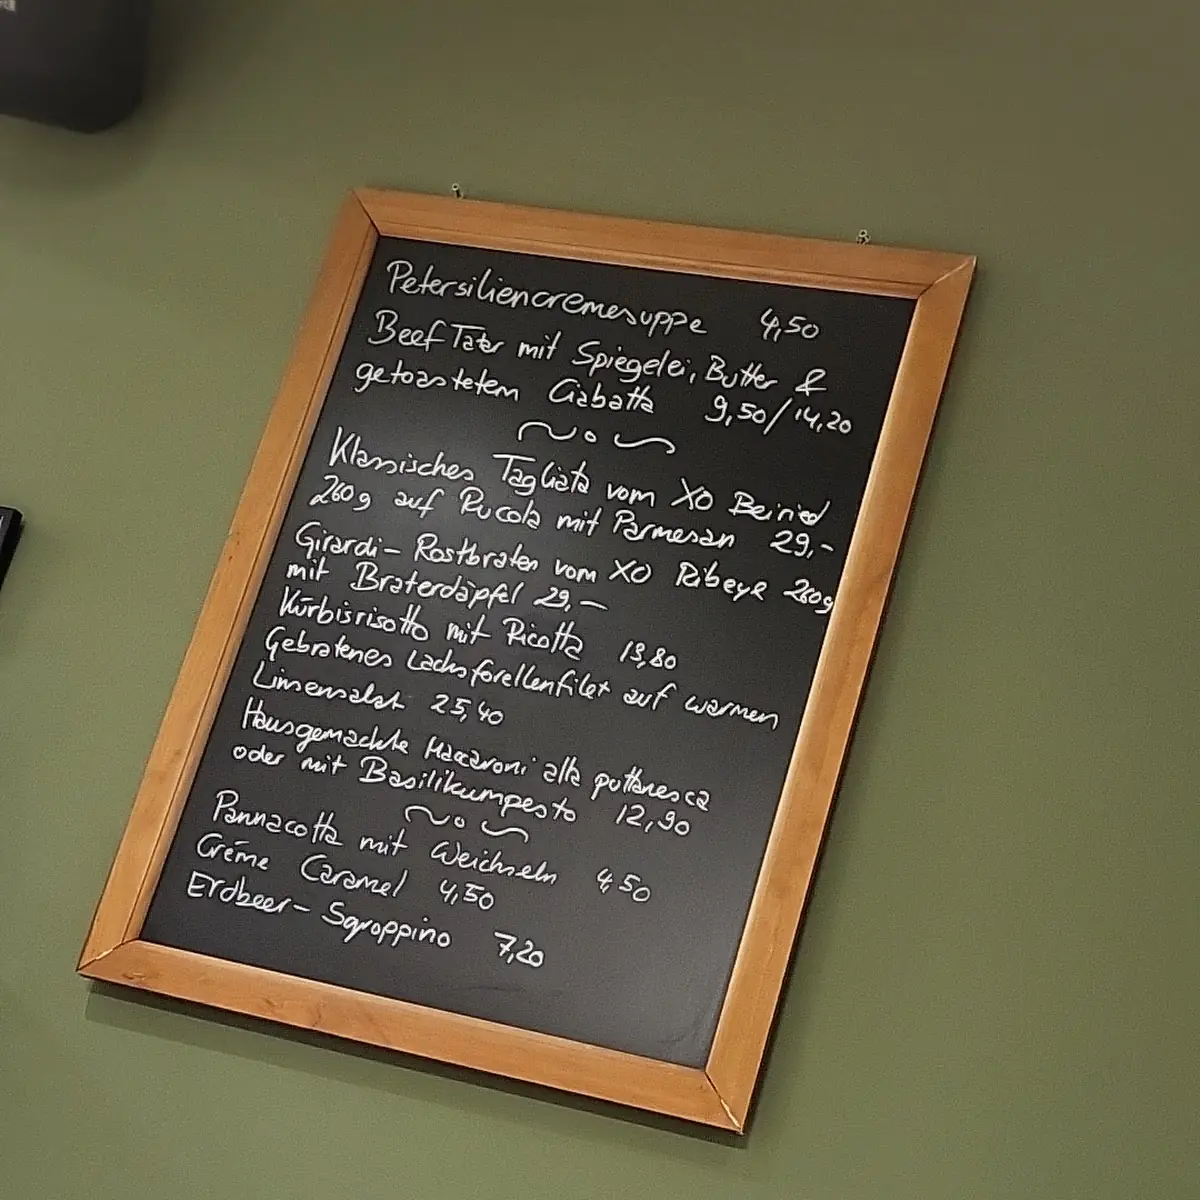 Petersiliencremesuppe 4,50
Beef Tatar mit Spiegelei, Butter &
getoastetem Ciabatta 9,50/14,20
Klassisches Tagliata vom XO Beiried
260g auf Rucola mit Parmesan 29,-
Girardi-Rostbraten vom XO Ribeye 260g
mit Braterdäpfel 29,-
Kürbisrisotto mit Ricotta 13,80
Gebratenes Lachsforellenfilet auf warmen
Linsensalat 25,40
Hausgemachte Maccaroni alla puttanesca
oder mit Basilikumpesto 12,90
Pannacotta mit Weichseln 4,50
Crème Caramel 4,50
Erdbeer-Sgroppino 7,20